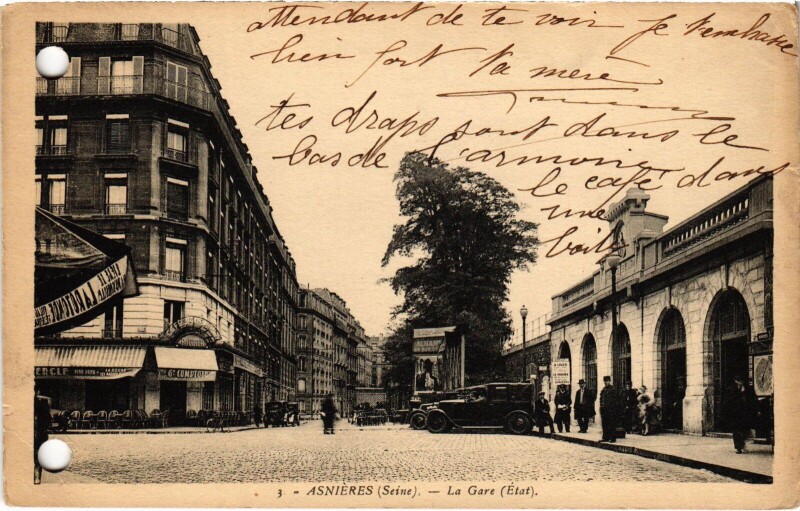 attendant de te voir je t'embrasse
bien fort ta mère
tes draps sont dans le
bas de l'armoire
le café dans
une
boîte
CERCLE
Gd COMPTOIR
3 - ASNIÈRES (Seine). - La Gare (État).